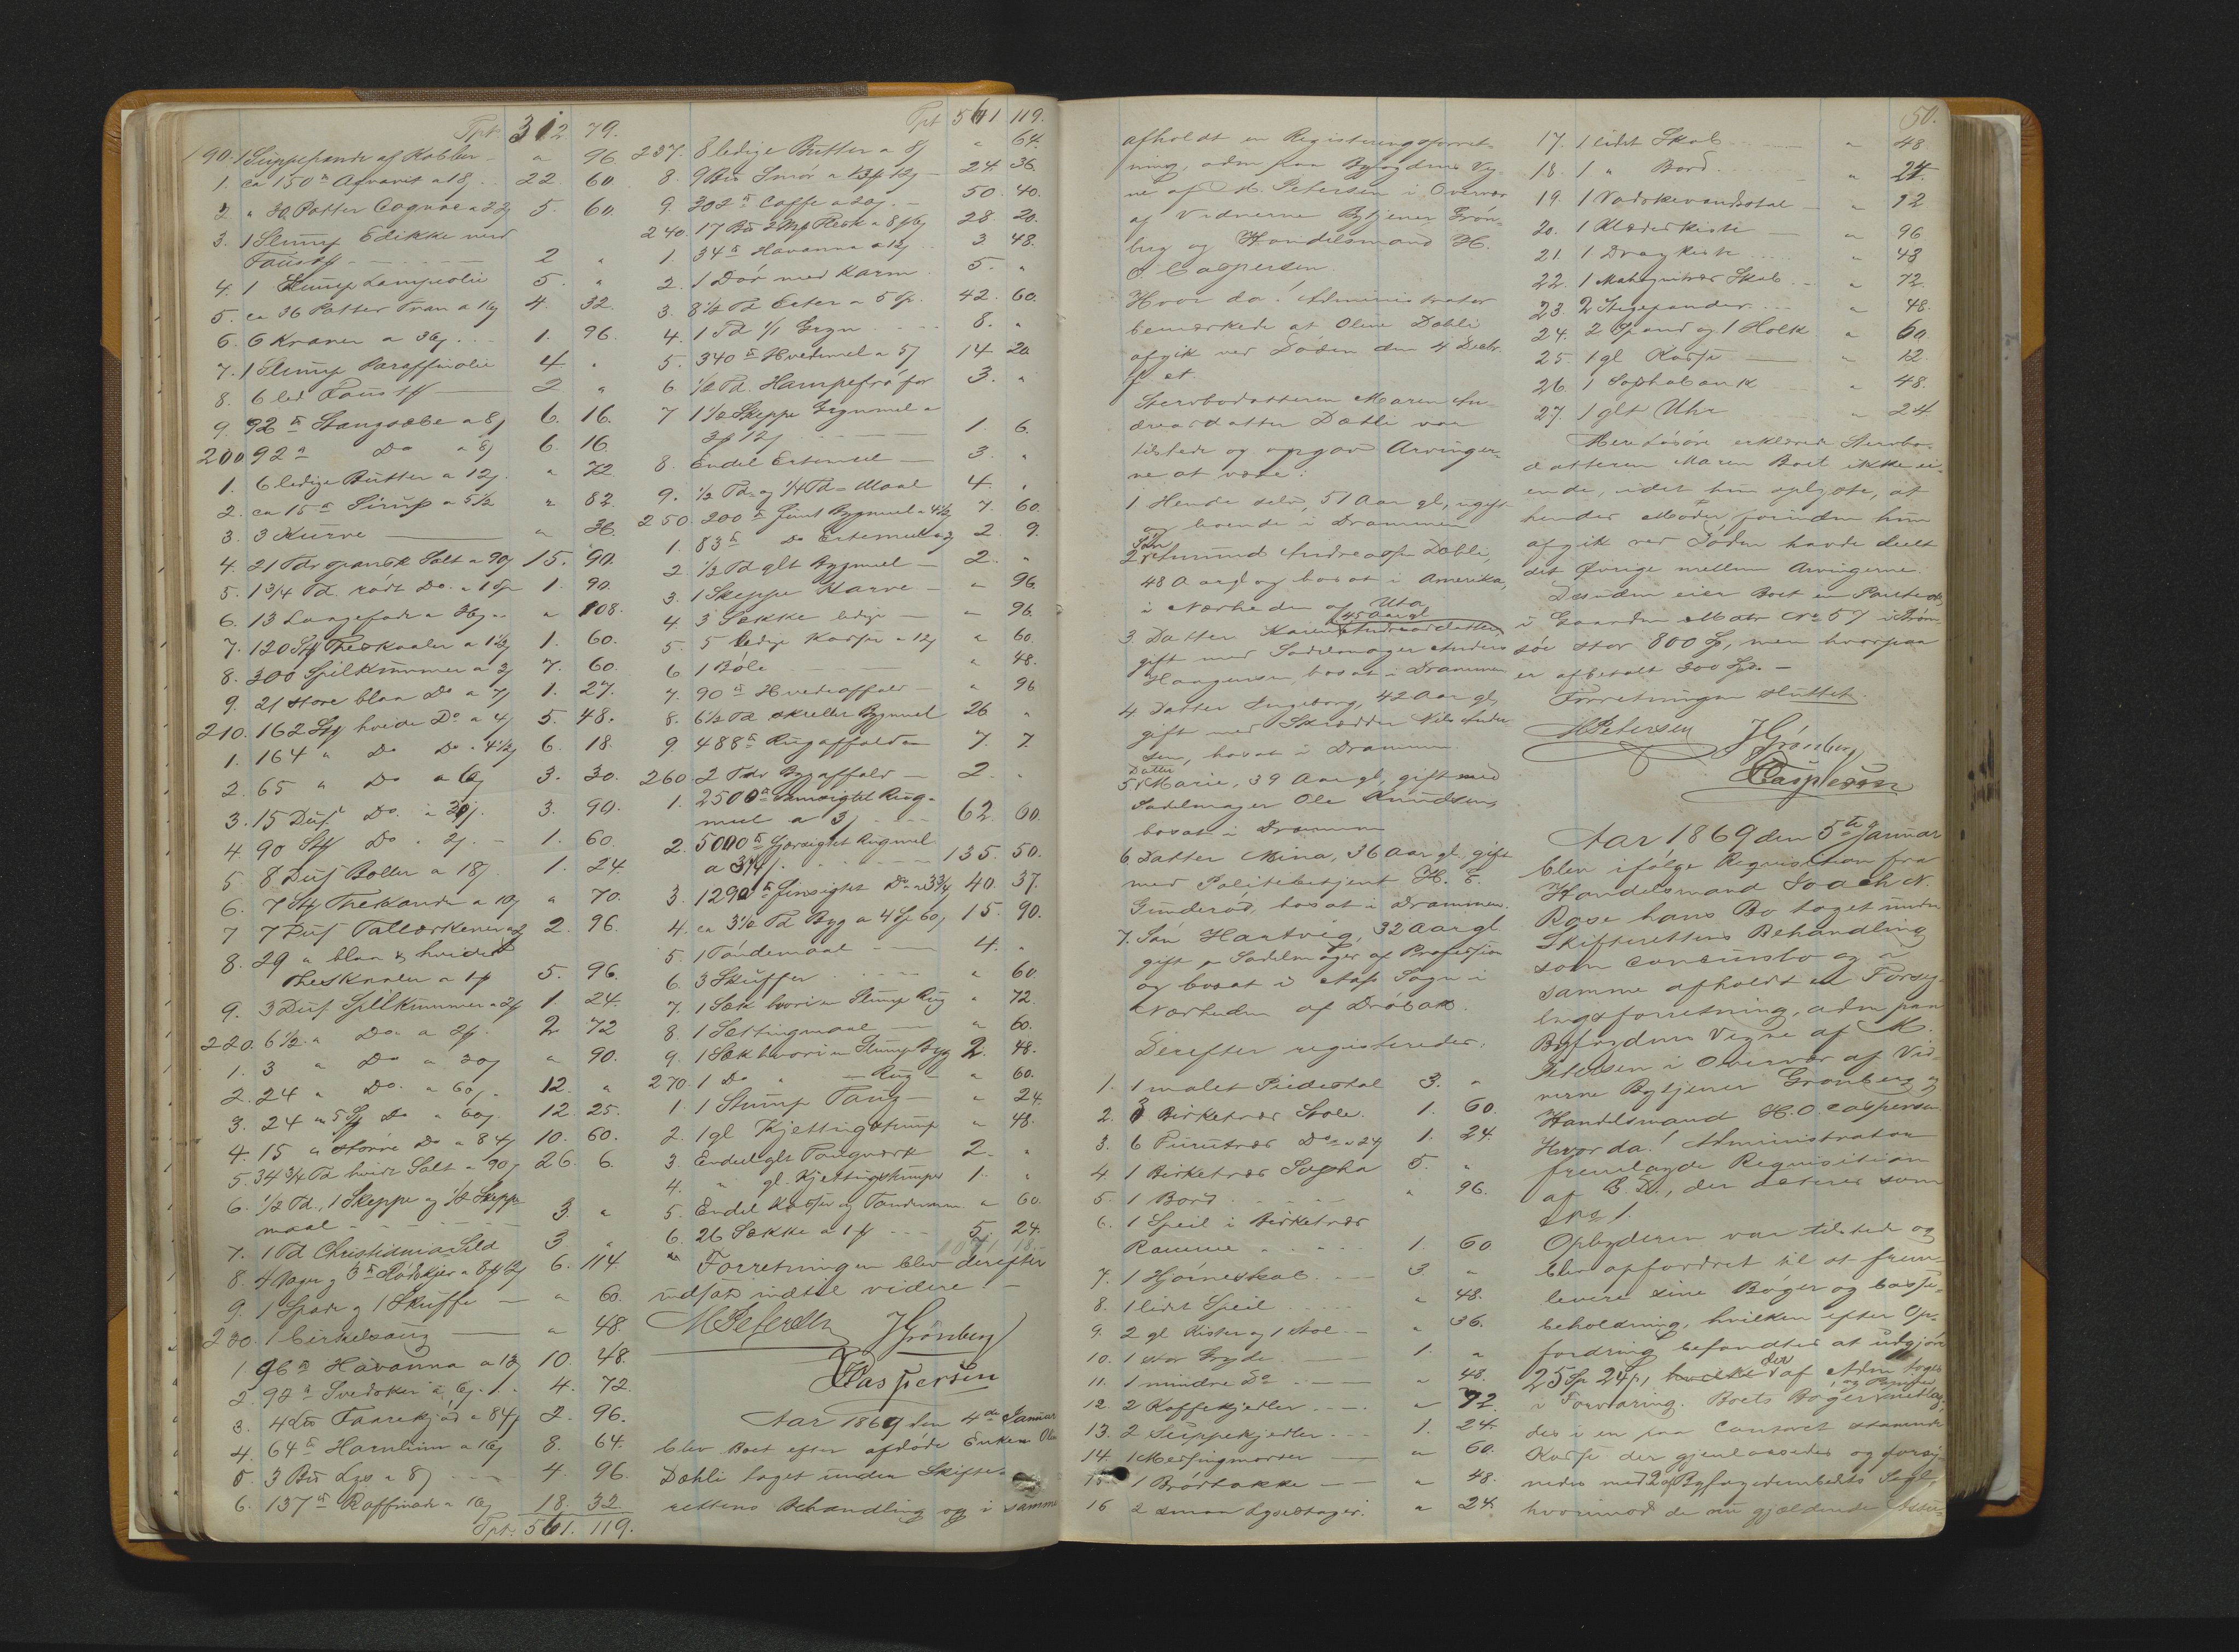 Tpt. 312 79.
190. 1 Suppepande af Kobber - " 96
1. ca 150 ℔ Aqvavit a 18 22. 60
2. " 30 Potter Cognac a 22 5. 60.
3. 1 Slump Edikke med
Foustg 2 "
4. 1 Slump Lampeolie 5. "
5. ca 36 Potter Tran a 16 4. 32.
6. 6 Kraner a 36 1. 96
7. 1 Slump Paraffinolie 4 "
8. 6 led. Foustg 2 "
9. 92 ℔ Stangsæbe a 8 6. 16.
200 92 " Do a 8 6. 16
1. 6 ledige Bütter a 12 " 72
2. ca 15 ℔ Sirup a 5½ " 82.
3. 3 Kurve " 36
4. 21 Tdr spansk Salt a 90 15. 90.
5. 1 3/4 Td. rødt Do. a 1 Sp 1. 90.
6. 13 Langefade a 36 " 108.
7. 120 St Theskaaler a 1½ 1. 60.
8. 300 Spilkummer a 3 7. 60.
9. 21 store blaa Do a 7 1. 27.
210. 162 St hvide Do a 4 5. 48.
1. 164 " Do Do a 4½ 6. 18.
2. 65 " Do a 6 3. 30.
3. 15 Dus Do. a 30 3. 90.
4. 90 St Do a 2 1. 60
5. 8 Dus Boller a 18 1. 24.
6. 7 St Thekande a 10 " 70.
7 7 Dus Tallerkener 2. 96.
8. 29 " blaa & hvide
Theskaaler a 1 5. 96.
9. 3 Dus Spilkummer a 2 1. 24.
220. 6½ " Do. a 2 2 72
1. 3 " Do a 30 " 90.
2. 24 " Do. a 60 12. "
3. 24 " 5 St Do a 60 12. 25.
4. 15 " større Do a 84 10. 60.
5. 34 3/4 Td hvidt Salt a 90 26. 6.
6. ½ Td., 1 Skeppe og ½ Skeppe
maal 3 "
7. 1 Td Christiania Sild 3 "
8. 4 Voger 6. 114.
9. 1 Spade og 1 Skuffe " 60.
230. 1 Cirkelsaug " 48.
1. 96 ℔ Havanna a 13 10. 48.
2. 92 ℔ Svedsker a 6 4. 72.
3. 4 Faarekjød a 84 2. 96.
4. 64 ℔ Hornlim a 16 8. 64.
5. 3 Bis Lys a 8 4. 96.
6. 137 ℔ Raffinade a 16 18. 32.
Tpt. 561. 119.
Tpt 561 119.
237. 8 ledige Bütter a 8 " 64.
8. 9 Bis Smør 24. 36.
9. 302 ℔ Caffe a 20 50. 40.
240. 17 Bis 2 Mk Flesk 28. 20.
1. 34 ℔ Havanna a 12 3. 48.
2. 1 Dør med Karm 5. "
3. 8½ Td Erter a 5 Sp. 42. 60.
4. 1 Td 1/1 Gryn 8. "
5. 340 ℔ Hvedemel a 5 14. 20
6. ½ Td. Hampefrø for 3. "
7 1½ Skeppe Grynmel a
1. 6.
8. Endel Ertemel 3. "
9. ½ Td- og ¼ Td- Maal 4. "
250. 200 ℔ fiint Bygmel a 4½ 7. 60.
1. 83 ℔ Do Ertemel 2. 9.
2. ½ Td glt Bygmel 2. "
3. 1 Skeppe Karve " 96
4. 3 Sække ledige " 96.
5. 5 ledige Kasser a 12 " 60.
6 1 Bøle " 48.
7. 90 ℔ Hvedeaffald " 96
8. 6½ Td skreller Bygmel 26 "
9. 488 ℔ Rugaffald 7. 7.
260. 2 Tdr Bygaffald 2. "
1. 2500 ℔ Rug-
mel a 3 62. 60.
2. 5000 ℔ Rugmel
a 3 1/4 135. 50.
3. 1290 ℔ finsigtet Do a 3 3/4 40. 37.
4. ca 3½ Td Byg a 4 Sp 60 15. 90.
5. 1 Tøndemaal 4. "
6. 3 Skuffer " 60.
7. 1 Sæk hvori en Slump Rug " 72.
8. 1 Settingmaal " 60.
9. 1 Sæk hvori en Slump Byg 2. 48.
270. 1 Do " Rug " 60.
1. 1 Slump Taug " 24.
2. 1 gl Kjettingstump " 48.
3. Endel glt Taugværk 2. "
4. " gl. Kjettingstumper 1. "
5. Endel Kasser og Tønder " 60.
6. 26 Sække a 1 5. 24.
Forretningen blev derefter
udsat indtil videre. -
M Petersen J Grønberg
Caspersen
Aar 1869 den 4de Januar
blev Boet efter afdøde Enken Oline
Dahli taget under Skifte-
rettens Behandling og i samme
50.
afholdt en Registreringsforret-
ning, adm paa Byfogdens Veg-
ne af M. Petersen i Overvær
af Vidnerne Bytjener Grøn-
berg og Handelsmand H.
O. Caspersen.
Hvor da! Administrator
bemærkede at Oline Dahli
afgik ved Døden den 4 Decbr.
f. A.
Stervbodatteren Maren An-
dreasdatter Dahli var
tilstede og opgav Arvinger-
ne at være:
1 Hende selv, 51 Aar gl, ugift
og boende i Drammen
2 Søn Amund Andreasen Dahli,
48 Aar gl og bosat i Amerika,
i Nærheden af Uta
3. Datter Karen Andreasdatter, 45 Aar gl
gift med Sadelmager Anders
Haagensen, bosat i Drammen
4 Datter Ingeborg, 42 Aar gl,
gift med Skrædder Nils Ander
sen, bosat i Drammen
5 Datter Marie, 39 Aar gl, gift med
Sadelmager Ole Knudsen,
bosat i Drammen
6. Datter Mina, 36 Aar gl. gift
med Politibetjent H. E.
Gunderød, bosat i Drammen.
7. Søn Hartvig, 32 Aar gl
gift, Sadelmager af Profession
og bosat i Aas Sogn i
Nærheden af Drøbak.
Derefter registreredes:
1. 1 malet Piedestal 3. "
2. 3 Birketræs Stole. 1. 60.
3. 6 Furutræs Do a 24 1. 24.
4. 1 Birketræs Sopha 5. "
5. 1 Bord " 96.
6. 1 Speil i Birketræs
Ramme 1. 60
7. 1 Hjørneskab 3. "
8. 1 lidet Speil " 48.
9. 2 gl Kister og 1 Stol " 36.
10. 1 stor Gryde 1. "
11. 1 mindre Do " 48.
12. 2 Kaffekjedler " 72.
13. 2 Suppekjedler 1. 24.
14. 1 Messingmorter " 60.
15 1 Brødbakke " 48.
16 2 smaa Lysestager. " 24.
17. 1 lidet Skab " 48.
18. 1 " Bord " 24.
19. 1 Vadskevandsstol " 12
20. 1 Klædeskiste " 96
21. 1 Dragkiste " 48
22. 1 Mahognitræs Skab " 72.
23. 2 Stegepander " 48.
24. 2 Spand og 1 Holk " 60
25. 1 gl Kasse " 12.
26. 1 Sophabænk " 48.
27. 1 glt Uhr " 24
Mere Løsøre erklærede Stervbo-
datteren Maren Boet ikke ei-
ende, idet hun oplyste, at
hendes Moder, forinden hun
afgik ved Døden havde deelt
det Øvrige mellem Arvingerne.
Desuden eier Boet en Panteobl.
i Gaarden Matr No 57 i Tröm-
söe stor 800 Sp, men hvorpaa
er afbetalt 300 Sp. -
Forretningen sluttet.
M Petersen J Grønberg
Caspersen
Aar 1869 den 5te Januar
blev ifølge Requisition fra
Handelsmand Joach N.
Rose hans Bo taget under
Skifterettens Behandling
som Concursbo og i
samme afholdt en Forseg-
lingsforretning, adm paa
Byfogdens Vegne af M.
Petersen i Overvær af Vid-
nerne Bytjener Grønberg og
Handelsmand H. O. Caspersen.
Hvor da! Administrator
fremlagde Requisition
af G. D., der acteres som
No 1.
Opbyderen var tilstede og
blev opfordret til at frem-
levere sine Bøger og Casse-
beholdning, hvilken efter Op-
fordring befandtes at udgjøre
25 Sp 24, hvilke der af Adm toges
i Forvaring. Boets Bøger nedlag-
des i en paa Contoret staaende
Kasse der gjenlaasedes og forsy-
nedes med 2 af Byfogedembedets Segl,
hvorimod de nu gjældende